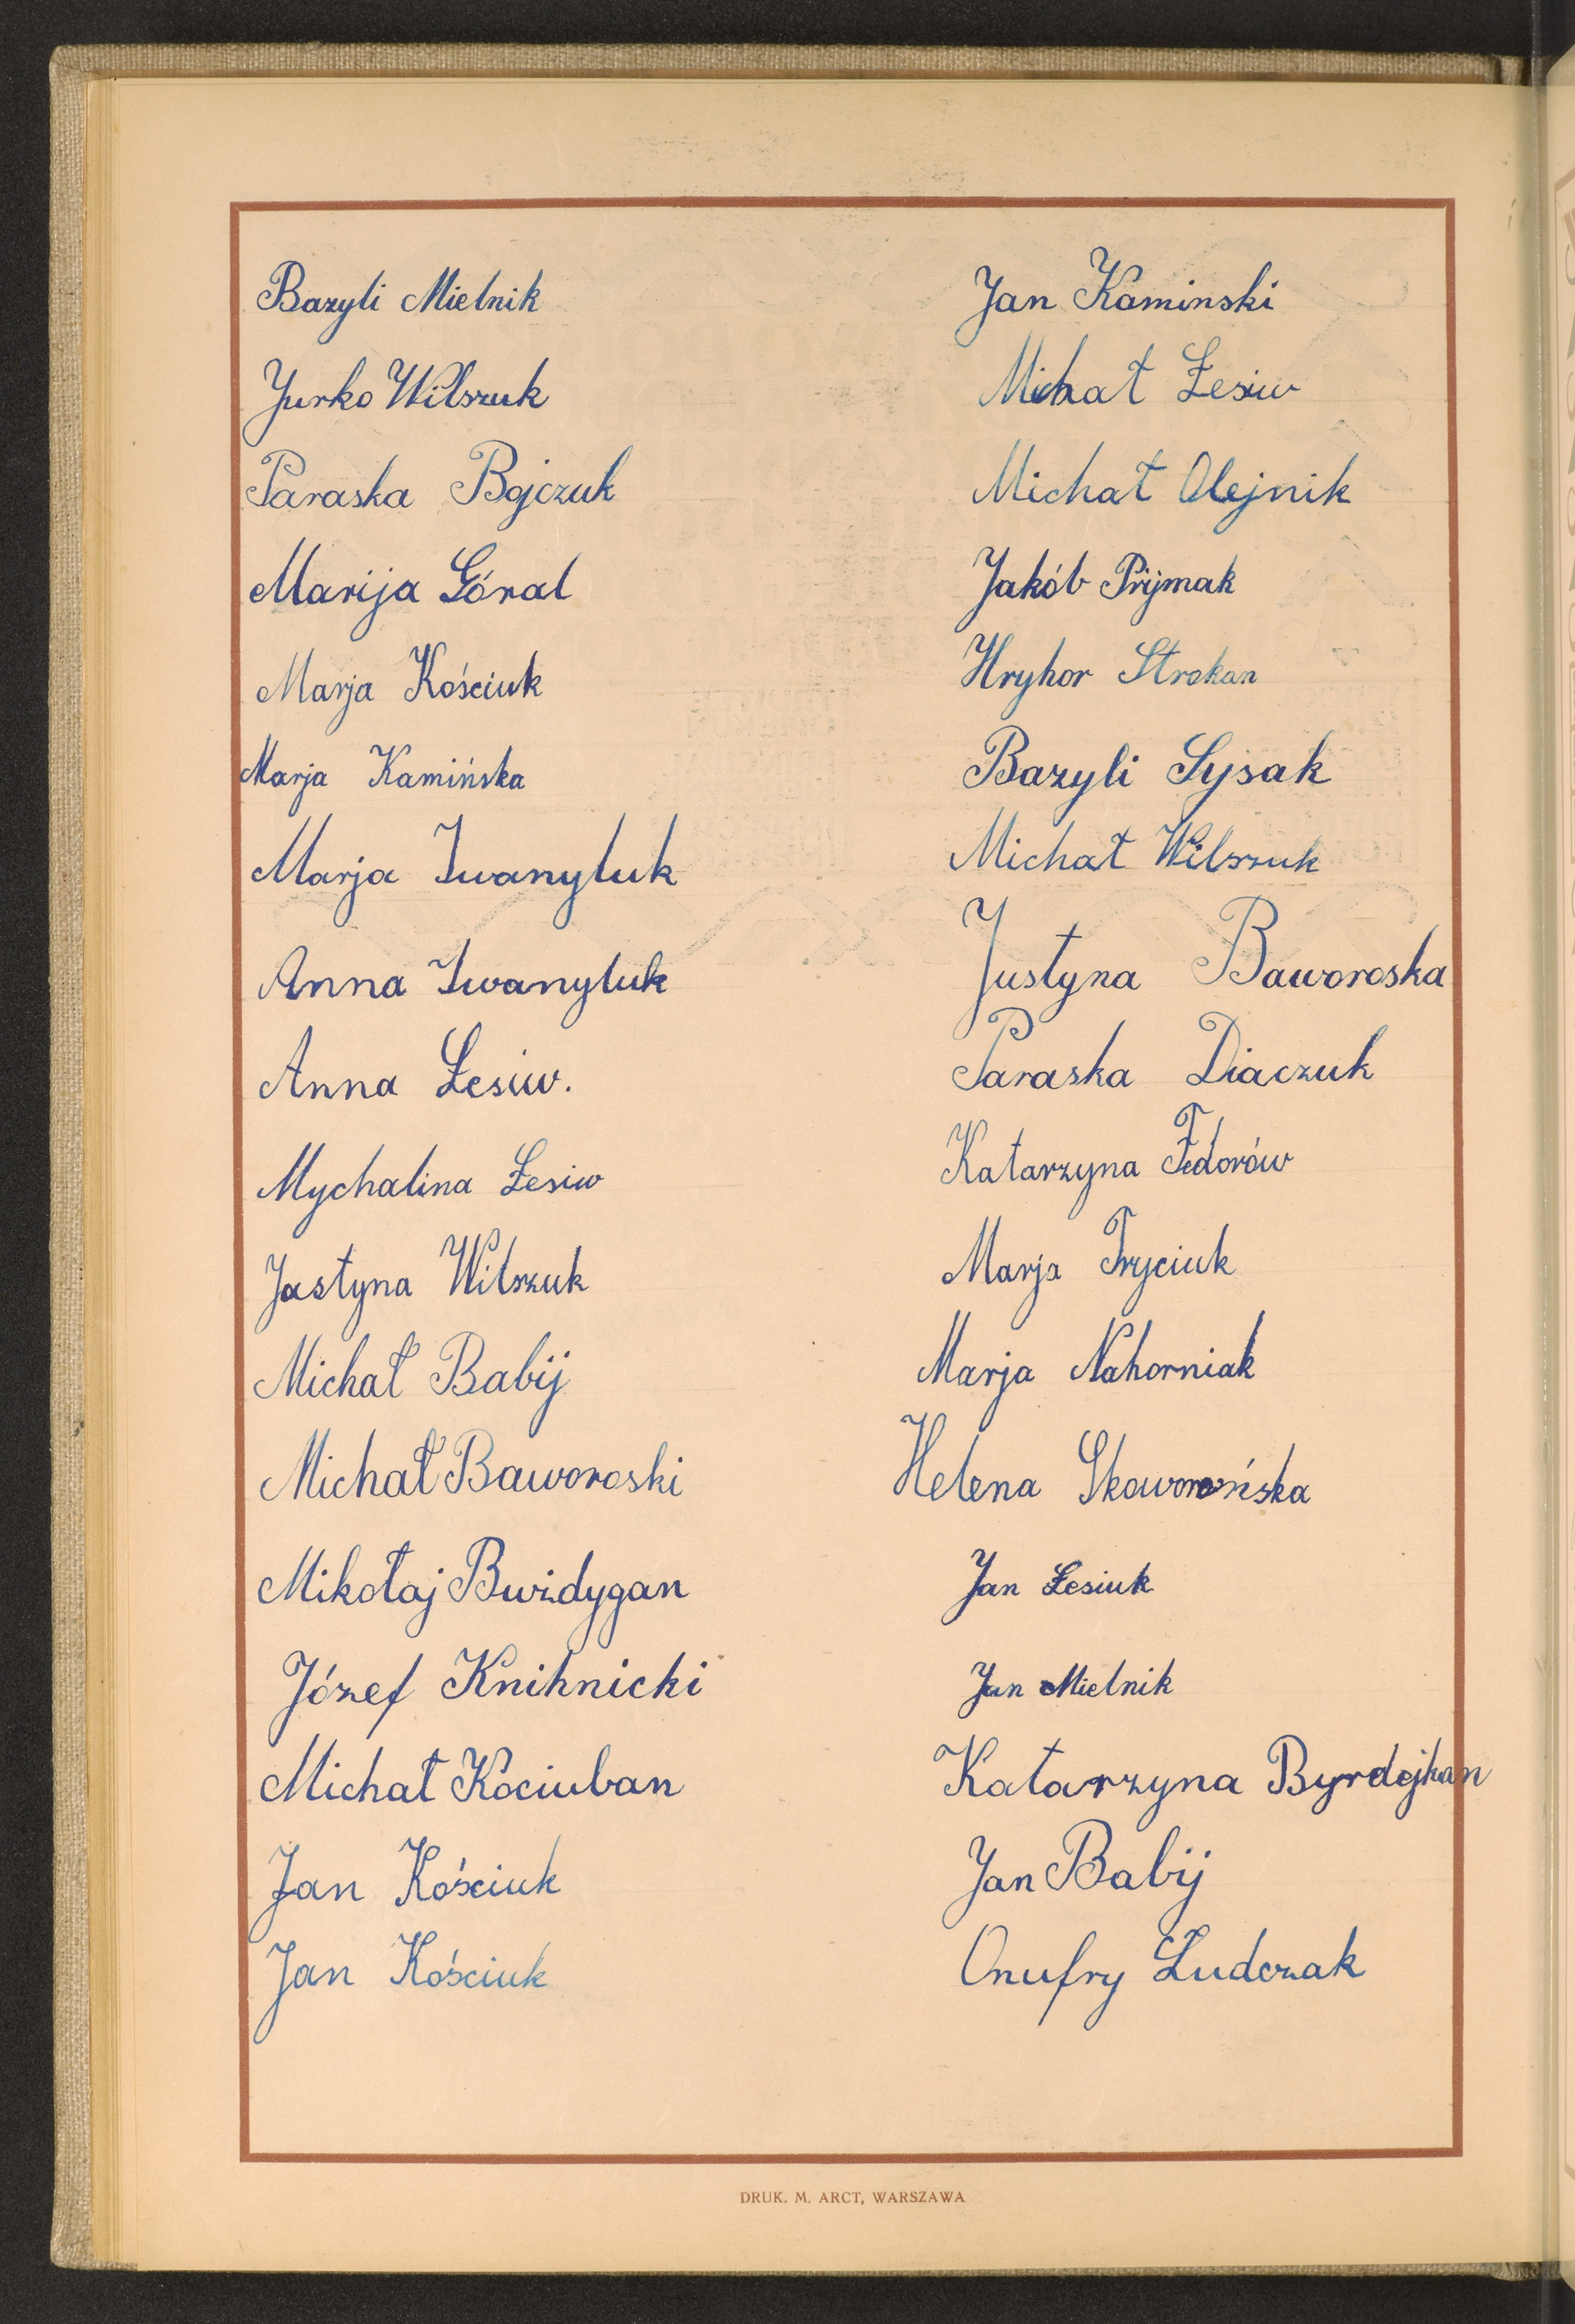 Bazyli Mielnik
Jurko Wilszuk
Paraska Bojczuk
Marija Góral
Marja Kościuk
Marja Kamińska
Marja Iwanyluk
Anna Iwanyluk
Anna Łesiw.
Mychalina Łesiw
Jastyna Wilszuk
Michał Babij
Michał Baworoski
Mikołaj
Józef Knihnicki
Michał Kociuban
Jan Kościuk
Jan Kościuk
Jan Kaminski
Michał Łesiw
Michał Olejnik
Jakób Prijmak
Hryhor Strokan
Bazyli Łysak
Michał Wilszuk
Justyna Baworoska
Paraska Diaczuk
Katarzyna Fedorów
Marja Tryciuk
Marja Nahorniak
Helena Skoworońska
Jan Łesiuk
Jan Mielnik
Katarzyna Byrdejhan
Jan Babij
Onufry Ludczak
DRUK. M. ARCT, WARSZAWA